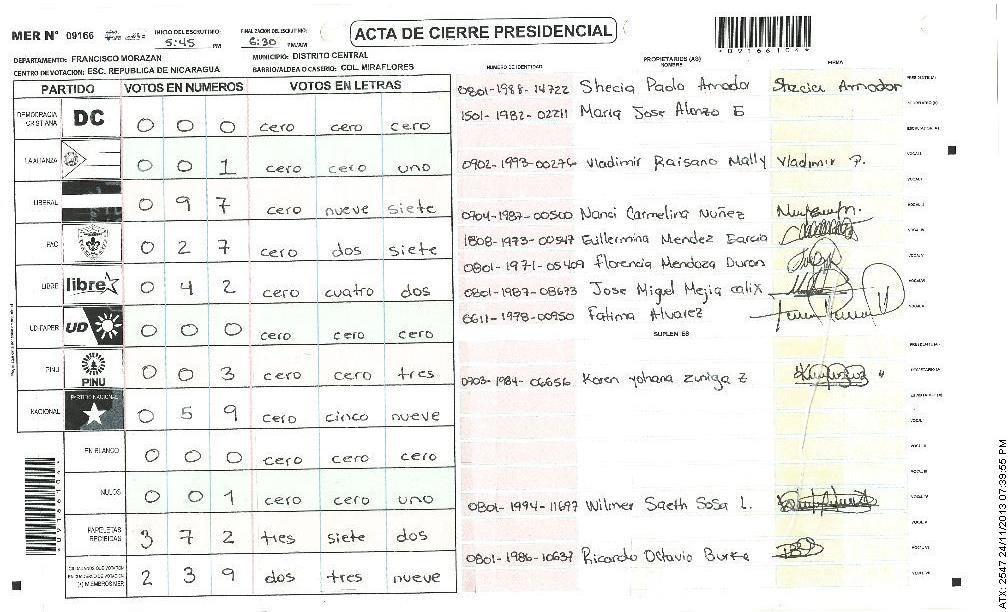 MER N° 09166
INICIO DEL ESCRUTINIO: 5:45 PM
FINALIZACION DEL ESCRUTINIO: 6:30 PM/AM
ACTA DE CIERRE PRESIDENCIAL
DEPARTAMENTO: FRANCISCO MORAZAN
MUNICIPIO: DISTRITO CENTRAL
CENTRO DE VOTACION: ESC. REPUBLICA DE NICARAGUA
BARRIO/ALDEA O CASERIO: COL. MIRAFLORES
PARTIDO VOTOS EN NUMEROS VOTOS EN LETRAS
DEMOCRACIA CRISTIANA DC 0 0 0 cero cero cero
LA ALIANZA 0 0 1 cero cero uno
LIBERAL 0 9 7 cero nueve siete
PAC 0 2 7 cero dos siete
LIBRE libre 0 4 2 cero cuatro dos
UD-FAPER UD 0 0 0 cero cero cero
PINU PINU 0 0 3 cero cero tres
NACIONAL PARTIDO NACIONAL 0 5 9 cero cinco nueve
EN BLANCO 0 0 0 cero cero cero
NULOS 0 0 1 cero cero uno
PAPELETAS RECIBIDAS 3 7 2 tres siete dos
2 3 9 dos tres nueve
NUMERO DE IDENTIDAD PROPIETARIOS (AS) NOMBRE FIRMA
0801-1988-14722 Shecia Paolo Amador Shecia Amador
1501-1982-02211 Maria Jose Alonzo E
0902-1993-00276 Vladimir Raisano Mally Vladimir P.
0704-1987-00500 Nanci Carmelina Nuñez
1808-1973-00547 Guillermina Mendez Garcia
0801-1971-05409 Florencia Mendoza Duron
0801-1987-08673 Jose Miguel Mejia calix
0611-1978-00950 Fatima Alvarez
SUPLENTES
0903-1984-06656 Karen yohana zuniga Z
0801-1994-11697 Wilmer Saeth Sosa L.
0801-1986-10637 Ricardo Octavio
ATX: 2547 24/11/2013 07:39:55 PM